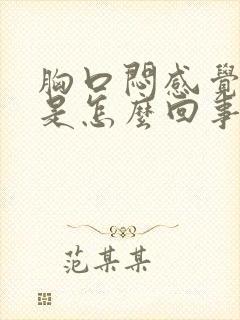 胸口悶感覺
是怎麼回事
范某某